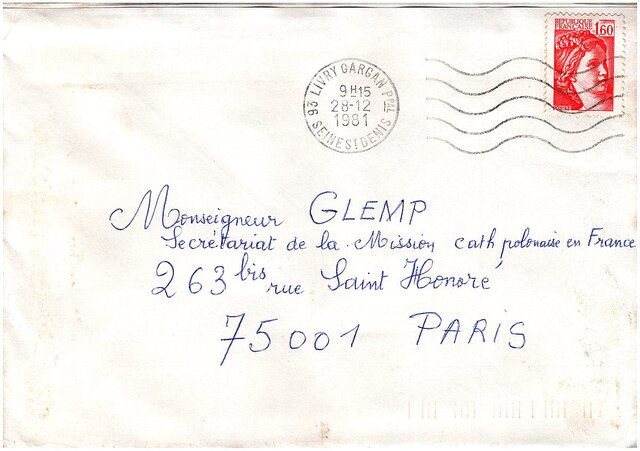 REPUBLIQUE
FRANÇAISE 1,60
93 LIVRY GARGAN PPAL
9H15
28-12
1981
SEINE ST DENIS
Monseigneur GLEMP
Secrétariat de la Mission cath polonaise en France
263 bis rue Saint Honoré
75001 PARIS